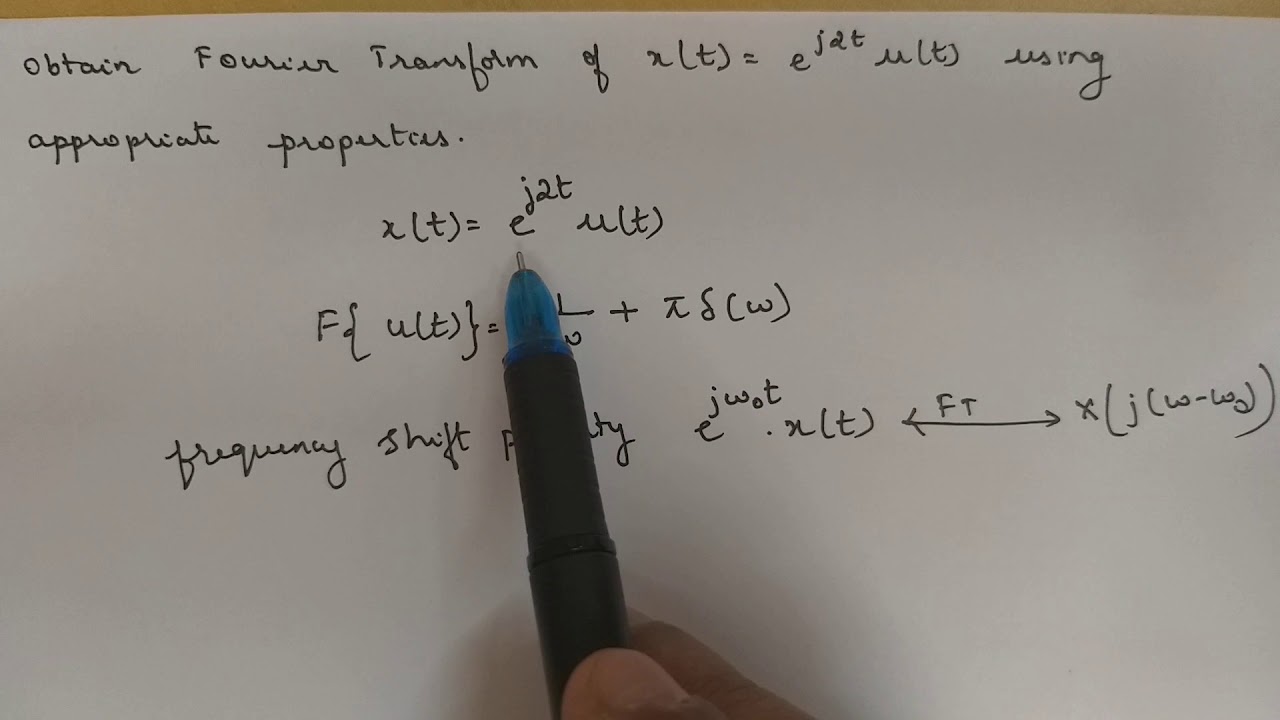 Obtain Fourier Transform of x(t) = e^{j2t} u(t) using
appropriate properties.
x(t) = e^{j2t} u(t)
F{ u(t)} = + π δ(ω)
frequency shift e^{jω₀t} . x(t) ⟷ FT X(j(ω-ω₀))